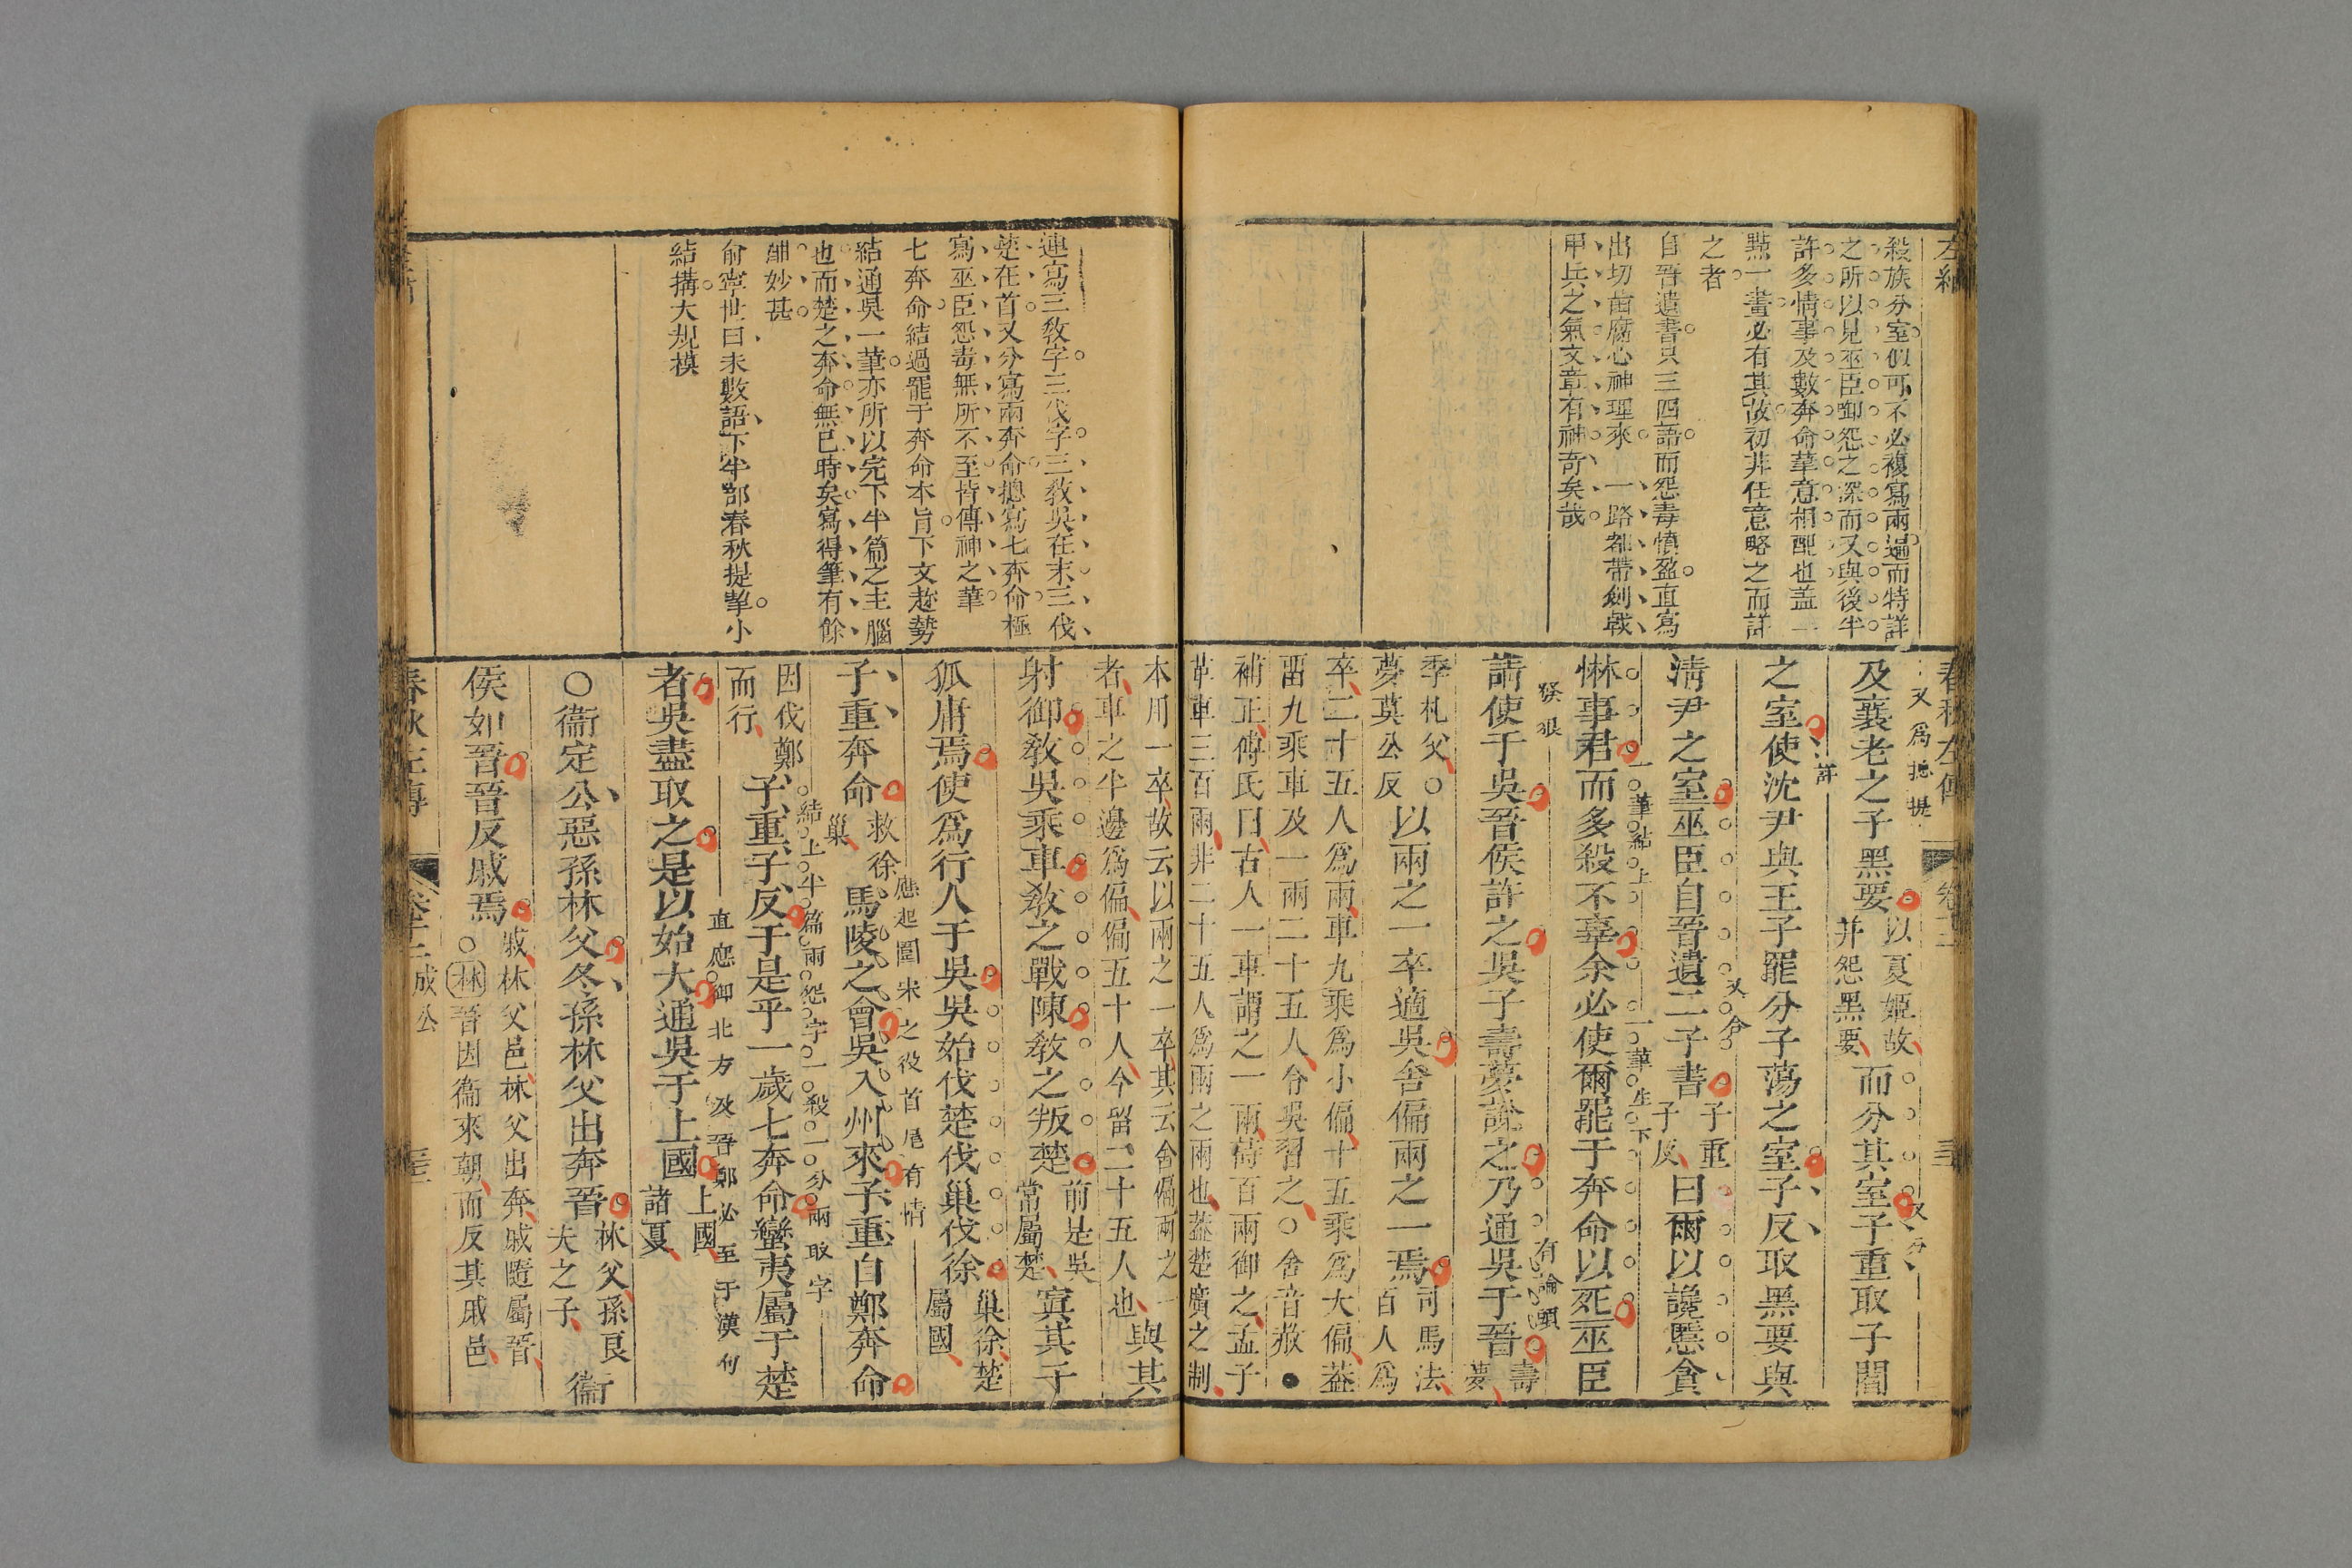 左繡
殺族分室似可不必複寫兩遍而特詳
之所以見巫臣卿怨之深而又與後半
許多情事及數奔命筆意相配也蓋一
點一畫必有其故初非任意略之而詳
之者
自晉遺書只三四語而怨毒憤盈直寫
出切齒腐心神理來　一路都帶劍戟
甲兵之氣文章有神奇矣哉
春秋左傳
卷十二
又爲摠提
及襄老之子黑要
以夏姬故
并怨黑要
而分其室子重取子閻
又分
之室使沈尹與王子罷分子蕩之室子反取黑要與
詳
又合
清尹之室巫臣自晉遺二子書
子重
子反
曰爾以讒慝貪
一筆結上
一筆生下
惏事君而多殺不辜余必使爾罷于奔命以死巫臣
請使于吳晉侯許之吳子壽夢說之乃通吳于晉
有論頭
壽
夢
季札父○
夢莫公反
以兩之一卒適吳舍偏兩之一焉
司馬法
百人爲
卒二十五人爲兩車九乘爲小偏十五乘爲大偏蓋
留九乘車及一兩二十五人令吳習之○舍音赦●
補正傅氏曰古人一車謂之一兩故百兩御之孟子
革車三百兩非二十五人爲兩之兩也蓋楚廣之制
連寫三教字三伐字三教吳在末三伐
楚在首又分寫兩奔命摠寫七奔命極
寫巫臣怨毒無所不至皆傳神之筆
七奔命結過罷于奔命本旨下文趁勢
結通吳一筆亦所以完下半篇之主腦
也而楚之奔命無已時矣寫得筆有餘
酣妙甚
俞寧世曰末數語下半部春秋提挈小
結搆大規模
本用一卒故云以兩之一卒其云舍偏兩之一
者車之半邊爲偏偏五十人今留二十五人也
與其
射御教吳乘車教之戰陳教之叛楚
前是吳
常屬楚
寘其子
狐庸焉使爲行人于吳吳始伐楚伐巢伐徐
巢徐楚
屬國
應起圍宋之役首尾有情
子重奔命
救徐
巢
馬陵之會吳入州來子重自鄭奔命
結上半篇兩怨字一殺一分兩取字
因伐鄭
而行
子重子反于是乎一歲七奔命蠻夷屬于楚
直應御北方及晉鄭必至于漢句
者吳盡取之是以始大通吳于上國
上國
諸夏
○衞定公惡孫林父冬孫林父出奔晉
林父孫良
夫之子
衞
侯如晉晉反戚焉
戚林父邑林父出奔戚隨屬晉
○林晉因衞來朝而反其戚邑
春秋左傳
卷十二
成公